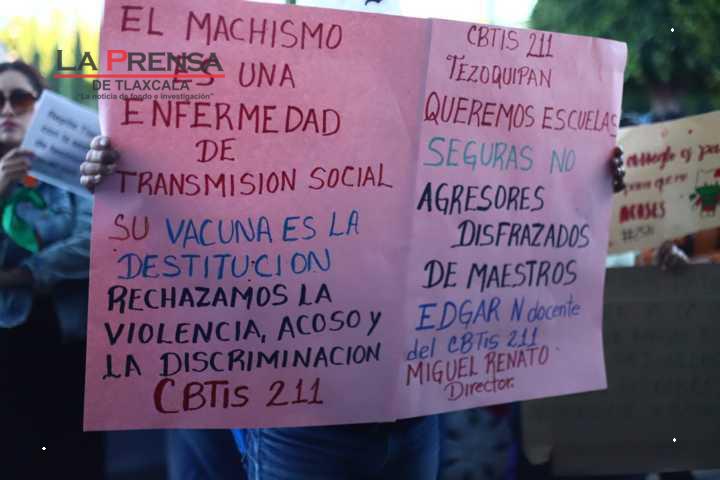 LA PRENSA
DE TLAXCALA
"La noticia de fondo e investigación"
EL MACHISMO
ES UNA
ENFERMEDAD
DE
TRANSMISION SOCIAL
SU VACUNA ES LA
DESTITUCION
RECHAZAMOS LA
VIOLENCIA, ACOSO Y
LA DISCRIMINACION
CBTis 211
CBTIS 211
TEZOQUIPAN
QUEREMOS ESCUELAS
SEGURAS NO
AGRESORES
DISFRAZADOS
DE MAESTROS
EDGAR N docente
del CBTis 211
MIGUEL RENATO
Director.